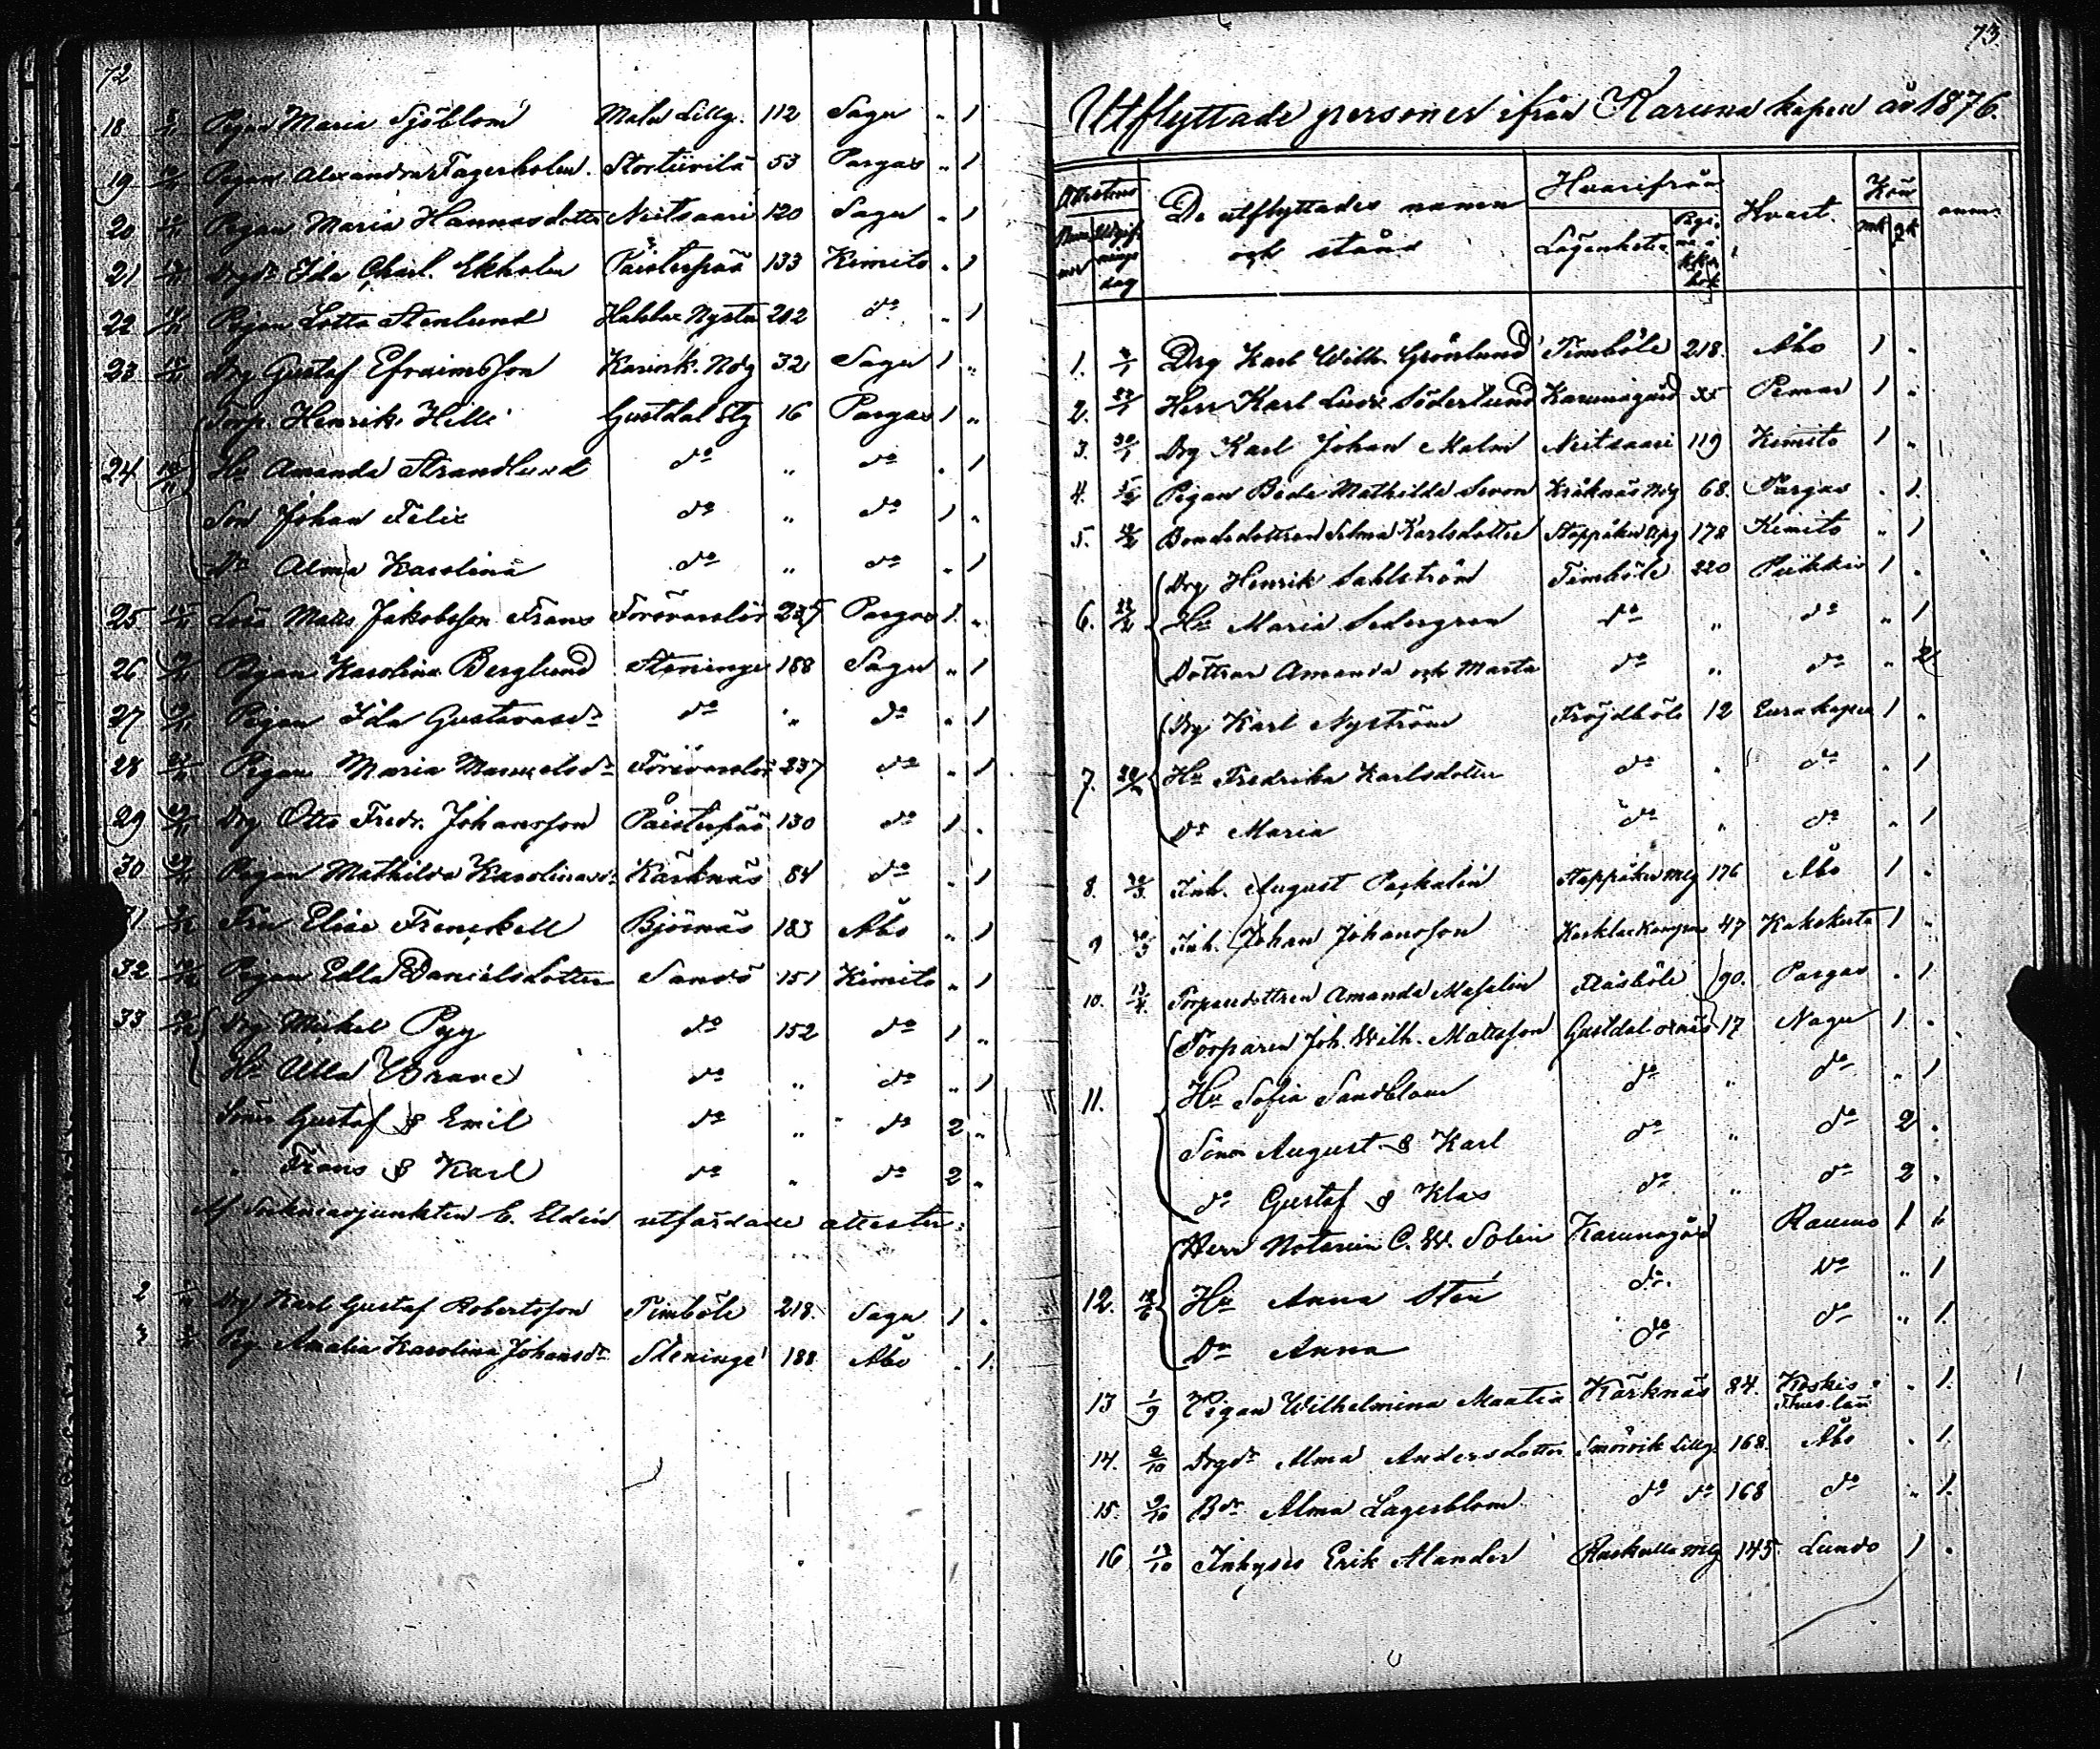 72
18 Pigan Maria Sjöblom Malu Lillg. 112 Sagu " 1
19 Pigan Alexandra Fagerholm. Stortiirilä 53 Pargas " 1
20 Pigan Maria Hannasdotter Niitsaari 120 Sagu " 1
21 Drgdr Ida Charl. Ekholm Päisterpää 133 Kimito " 1
22 Pigan Lotta Stenlund Nysta 212 do " 1
23 Drg Gustaf Efraimsson 32 Sagu 1 "
Torp. Henrik Helle Gustdal Stg 16 Pargas 1 "
24 Hu Amanda Strandlund do " do " 1
Son Johan Felix do " do 1 "
Dr Alma Karolina do " do " 1
25 Lösa Matts Jakobsson Frans 237 Pargas 1 "
26 Pigan Karolina Berglund Steninge 188 Sagu " 1
27 Pigan Ida Gustavasdr do " do " 1
28 Pigan Maria 237 do " 1
29 Drg Otto Fredr. Johansson Påisterpää 130 do 1 "
30 Pigan Mathilda Karolinasdr Kärknäs 84 do " 1
31 Fru Elise Frenckell Björnäs 183 Åbo " 1
32 Pigan Edla Danielsdotter Sandö 151 Kimito " 1
33 Drg Mickel Pyy do 152 do 1 "
Hu Ulla Brave do " do " 1
Söner Gustaf & Emil do " do 2 "
" Frans & Karl do " do 2 "
Af Sockneadjunkten E. Eldén utfärdade attester:
2 Drg Karl Gustaf Robertsson Timböle 218. Sagu 1 "
3 Pig. Amalia Karolina Johansdr Steninge 188 Åbo " 1.
73.
Utflyttade personer ifrån Karuna kapell år 1876.
De utflyttades namn Hvarifrån Hvart. Kön anm.
och stånd Lägenheter mk qk
dag
1. 4/1 Drg Karl Wilh. Grönlund Timböle 218. Åbo 1 "
2. 22/1 Herr Karl Ludv. Söderlund Karunagård 35 Pemar 1 "
3. 30/1 Drg Karl Johan Malm Niitsaari 119 Kimito 1 "
4. Pigan Beda Mathilda Kråknäs Ndg 68. Pargas " 1.
5. Bondedottren Selma Karlsdotter Stoppåker 178 Kimito " 1
Drg Henrik Sahlström Timböle 220 Piikkis 1 "
6. 22/2 Hu Maria Sedergren do " do " 1
Döttrar Amanda och Marta do " do " 2
Drg Karl Nyström Fröjdböle 12 Eura kapell 1 "
7. Hu Fredrika Karlsdotter do " do " 1
Dr Maria do " do " 1
8. Inh. August Paskalin Stoppåker 176 Åbo 1 "
9 Inh. Johan Johansson 47 Kakskerta 1 "
10. 13/4 Torparedottren Amanda Flåsböle 90. Pargas " 1
Torparen Joh. Wilh. Mattsson Gustdal 17 Nagu 1. "
11. Hu Sofia Sandblom do " do " 1
Söner August & Karl do " do 2 "
do Gustaf & Klas do " do 2 "
Herr Notarien C. W. Solin Karunagård Raumo 1
12. Hu Anna Stén do. do " 1
Dr Anna do do " 1.
13 1/9 Pigan Wilhelmina Maatia Kärknäs 84. Koskis " 1.
14. 2/10 Drgdr Alma Andersdotter Smörvik Lillg. 168. Åbo " 1.
15. 9/10 Bdr Alma Lagerblom do do 168 do " 1.
16 13/10 Inhyses Erik Alander 145 Lundo 1 "